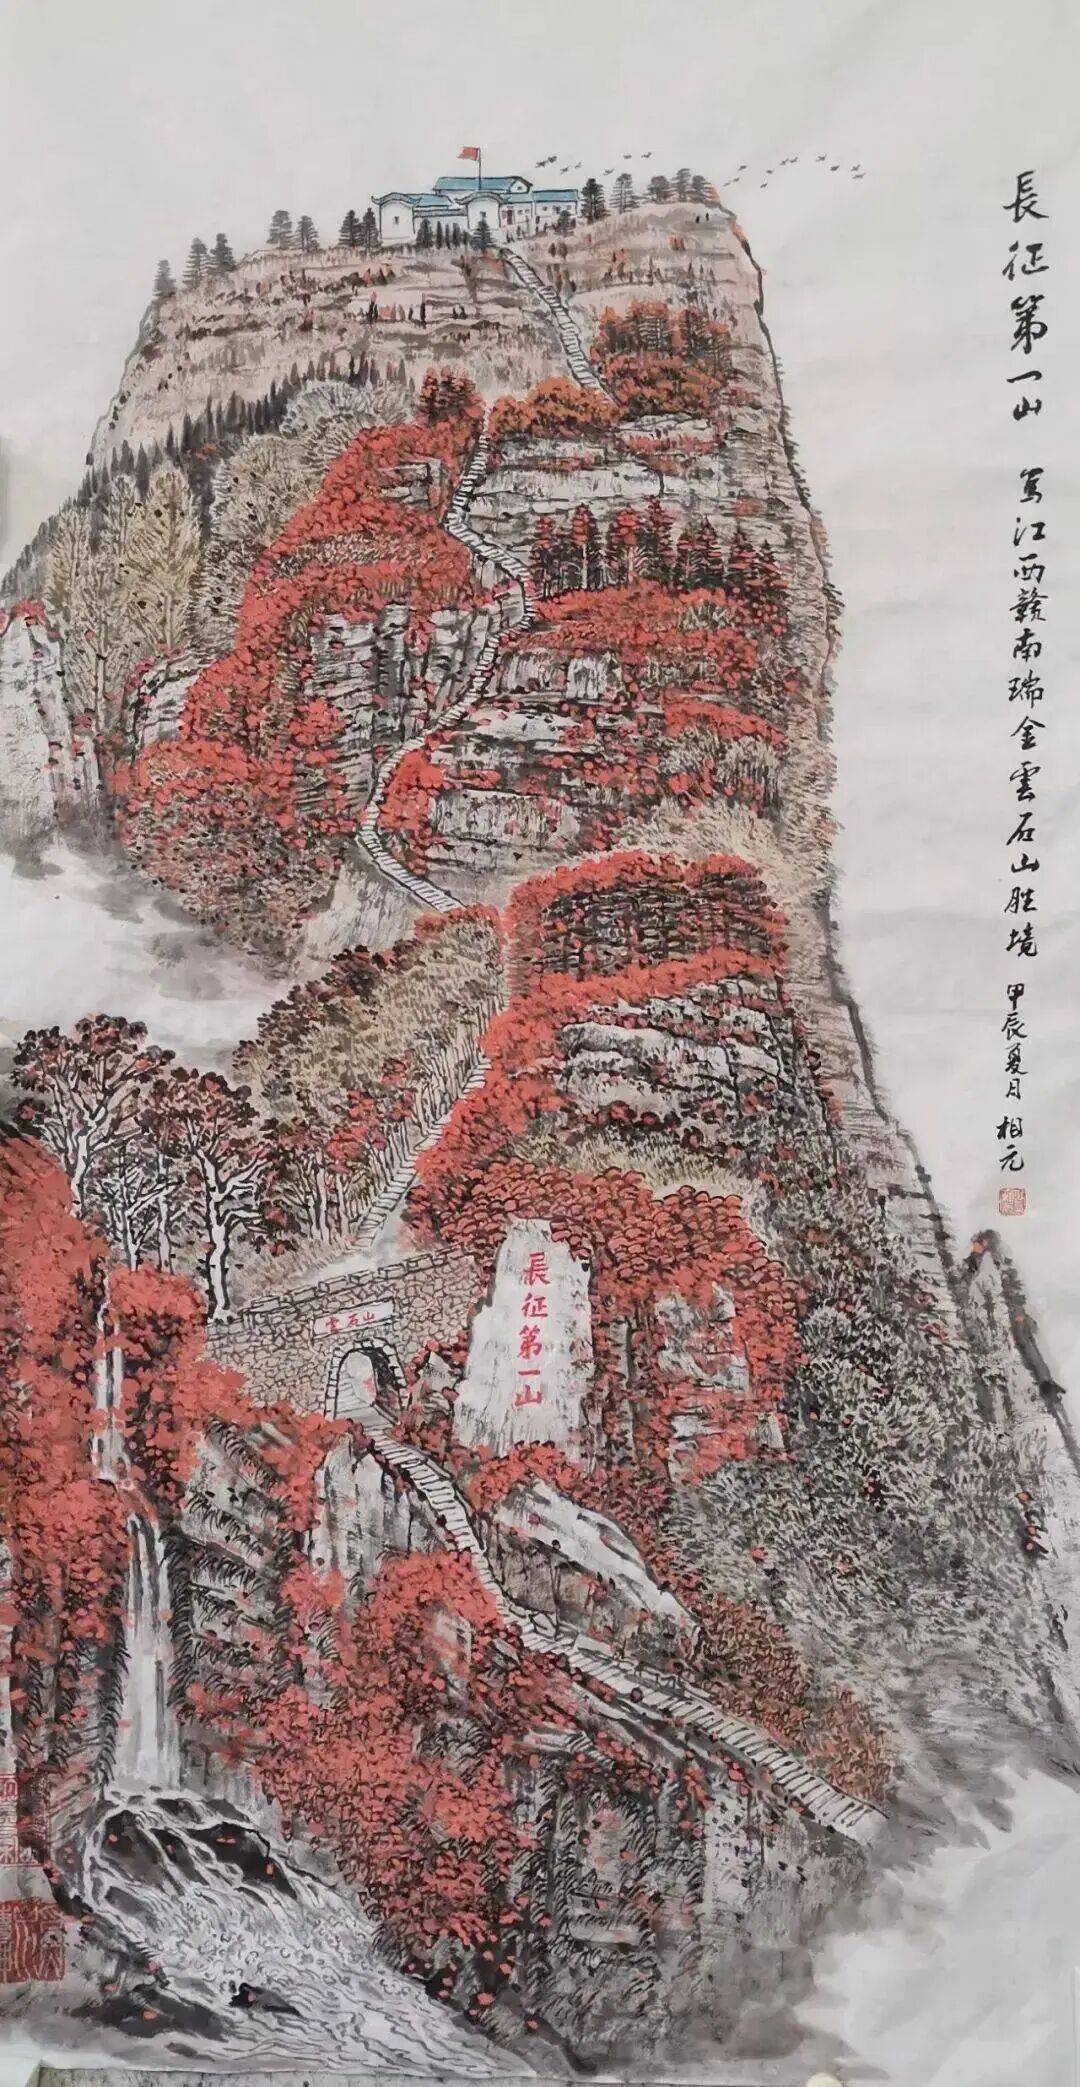 長征第一山 写江西赣南瑞金雲石山胜境 甲辰夏月 相元
長征第一山
雲石山